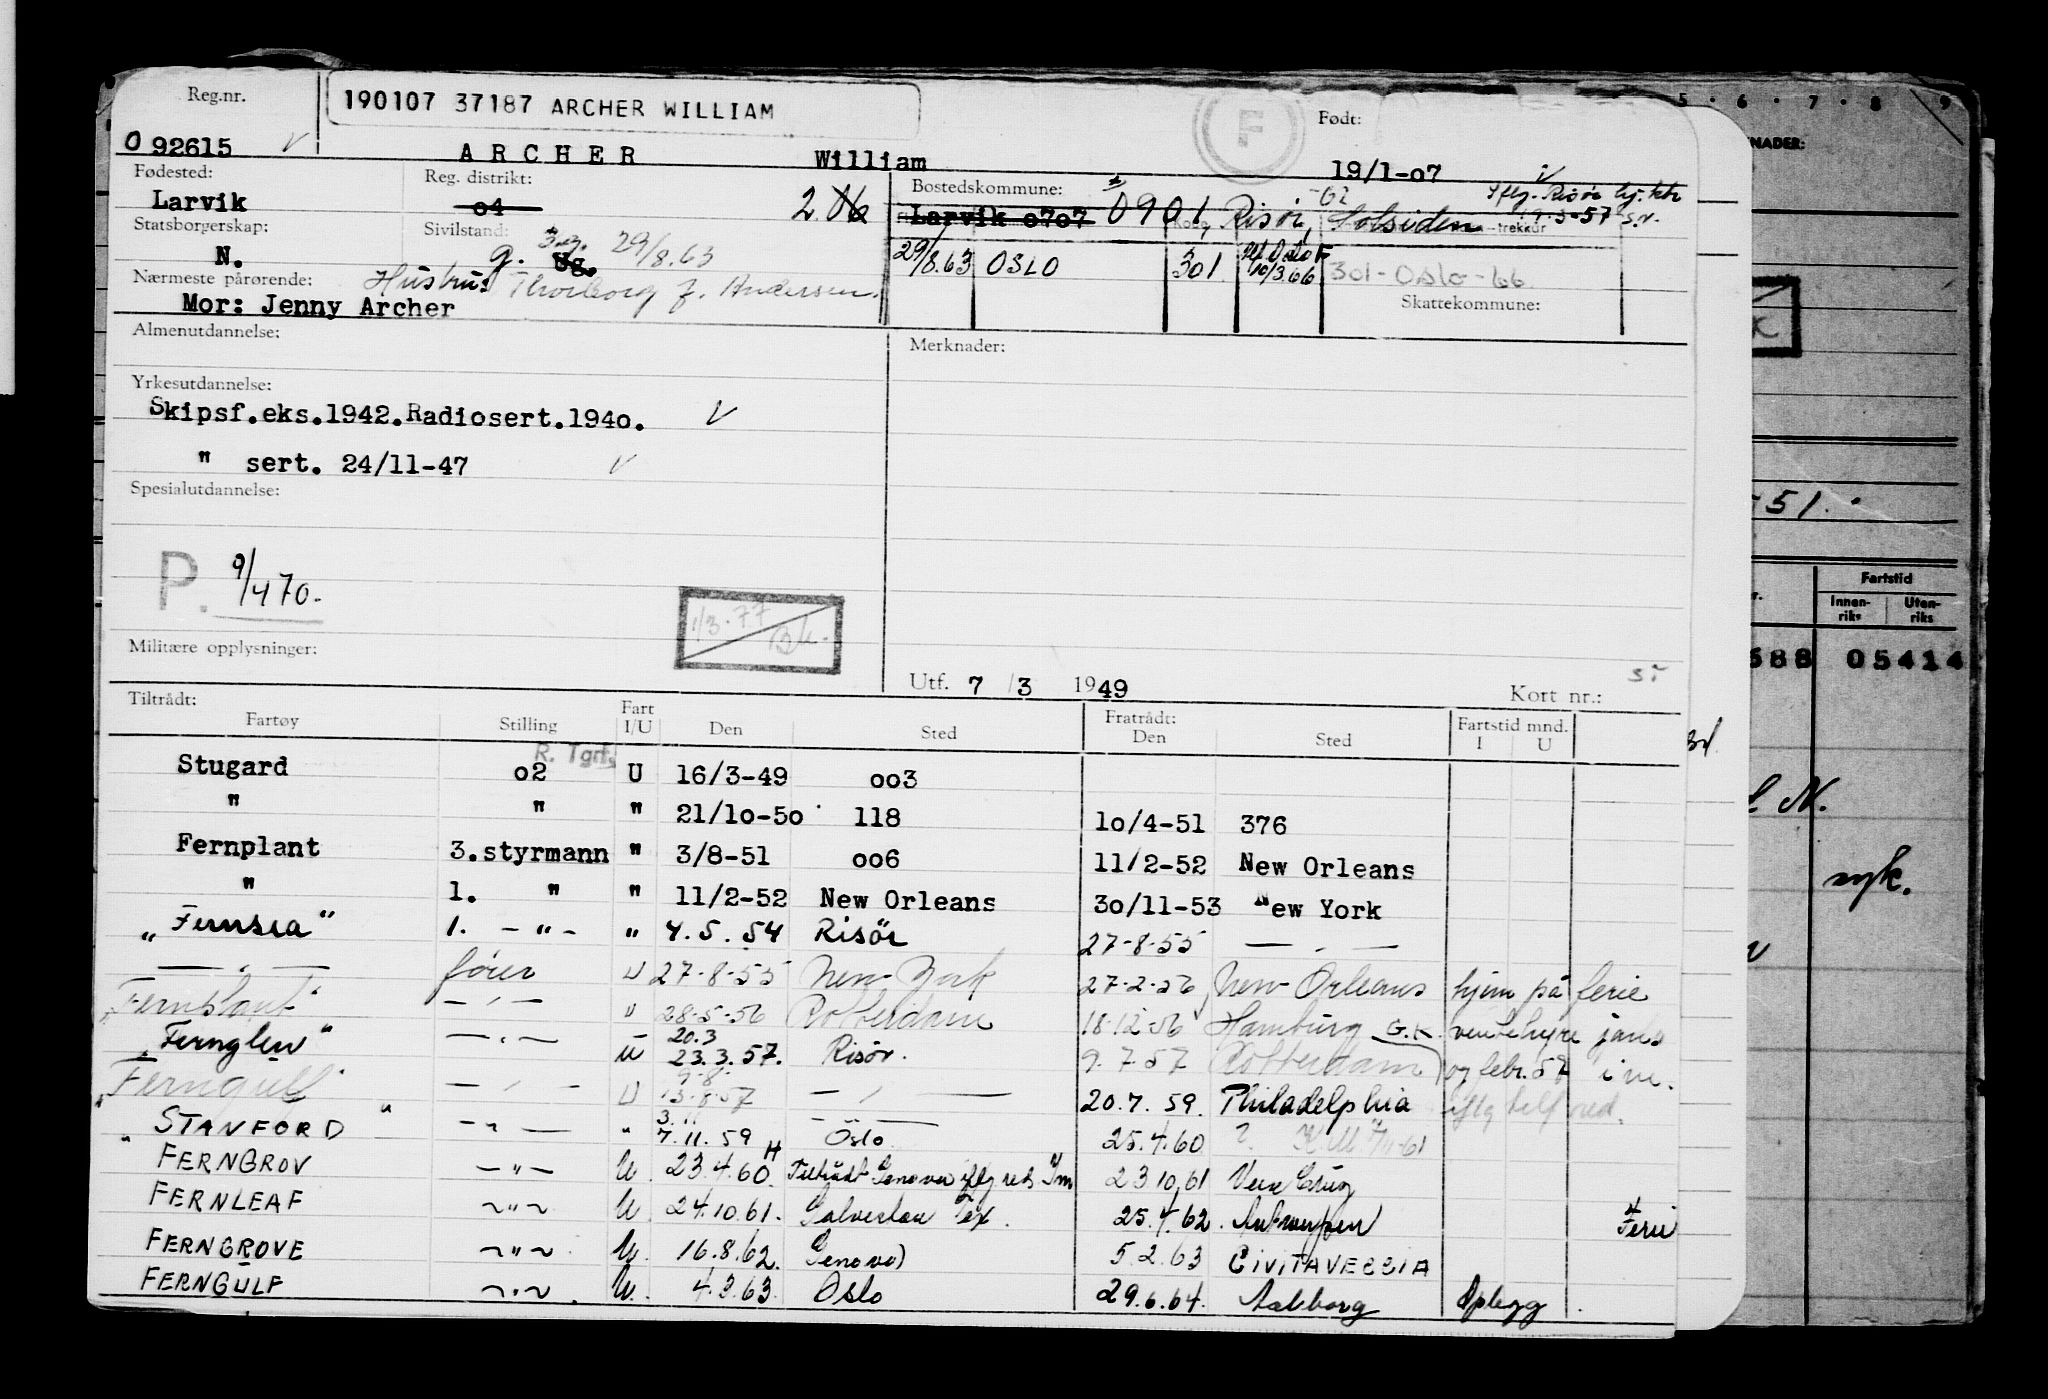 Reg.nr.
190107 37187 ARCHER WILLIAM
F
Født:
092615
ARCHER William 19/1-07
Fødested:
Reg. distrikt:
Bostedskommune:
Larvik
04
Larvik 0707 0901, Risör, Solsiden
-62
Iflg. Risör
19-3-57 S.N.
-trekkur
Statsborgerskap:
Sivilstand:
N.
g. Ug. 29/8.63
29/8.63 OSLO 301 10/3.66 301-Oslo-66
Nærmeste pårørende:
Hustru: Thorborg f. Andersen.
Mor: Jenny Archer
Skattekommune:
Almenutdannelse:
Merknader:
Yrkesutdannelse:
Skipsf.eks.1942.Radiosert.1940.
" sert. 24/11-47
Spesialutdannelse:
P. 9/4 70.
1/3.77
Militære opplysninger:
Utf. 7/3 1949
Kort nr.:
Tiltrådt:
Fartøy Stilling Fart I/U Den Sted Fratrådt: Den Sted Fartstid mnd. I U
R. Tgrf.
Stugard 02 U 16/3-49 003
" " " 21/10-50 118 10/4-51 376
Fernplant 3.styrmann " 3/8-51 006 11/2-52 New Orleans
" 1. " " 11/2-52 New Orleans 30/11-53 New York
„Fernsea" 1. -"- " 4.5.54 Risör 27-8-55 — - —
— " — fører U 27-8-55 New York 27-2-56 New Orleans hjem på ferie
"Fernplant" — " — " 28-5-56 Rotterdam 18-12-56 Hamburg G.K.
„Fernglen" — " — U 20.3 23.3.57. Risör. 9.7.57 Rotterdam og febr. 57
"Ferngulf" — " — U 9-8- 13-8-57 — " — 20.7.59. Philadelphia
" STANFORD " — " — " 3.11 7.11.59 Oslo 25.4.60 ?
FERNGROV —"— U. 23.4.60 Tiltrådt Genova iflg red. 23 10.61 Vera Cruz
FERNLEAF ~"~ U. 24.10.61. Galveston Tex. 25.4.62. Antwerpen Ferie
FERNGROVE ~"~ U. 16.8.62. Genova 5.2.63 CIVITAVECCIA
FERNGULF ~"~ U. 4.3.63. Oslo 29.6.64. Aalborg Oplegg.
5 · 6 · 7 · 8 9
NADER:
51.
Fartstid
Innen-riks Uten-riks
588 05414
N.
syk.